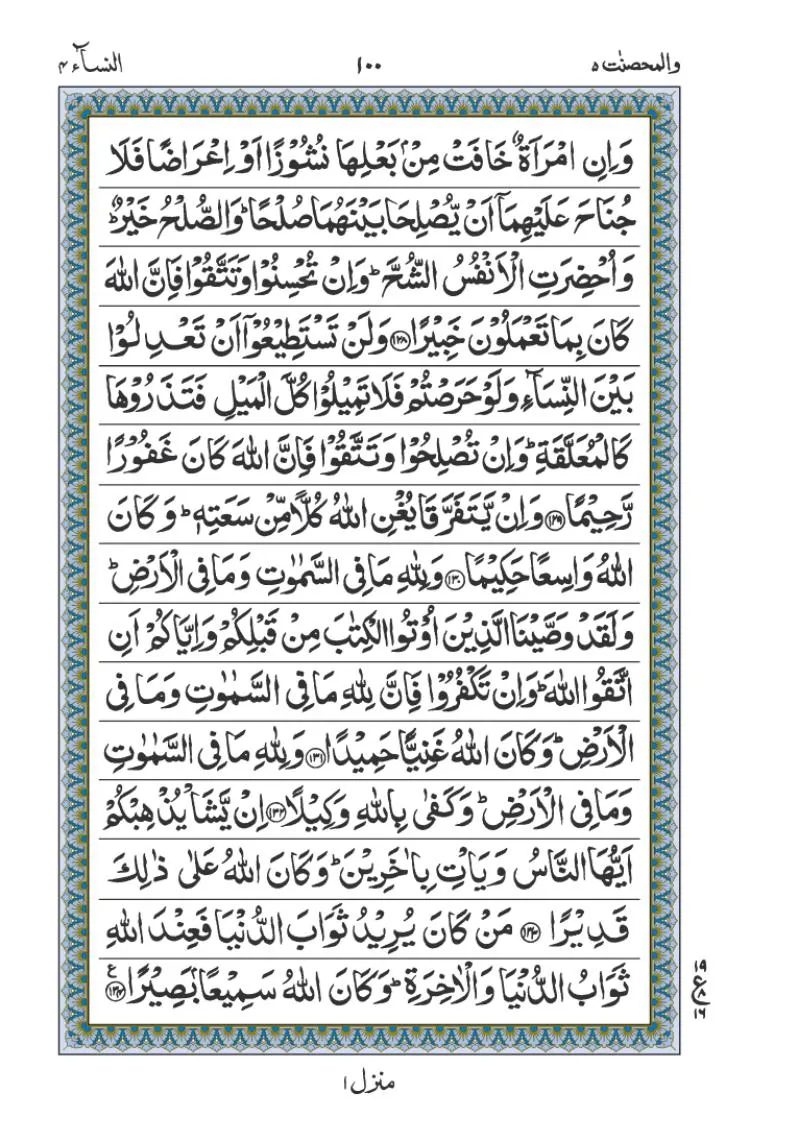 والمحصنت ۵ ۱۰۰ النسآء ۴
وَاِنِ امْرَاَةٌ خَافَتْ مِنْۢ بَعْلِهَا نُشُوْزًا اَوْ اِعْرَاضًا فَلَا
جُنَاحَ عَلَيْهِمَاۤ اَنْ يُّصْلِحَا بَيْنَهُمَا صُلْحًا ؕ وَالصُّلْحُ خَيْرٌ ؕ
وَاُحْضِرَتِ الْاَنْفُسُ الشُّحَّ ؕ وَاِنْ تُحْسِنُوْا وَتَتَّقُوْا فَاِنَّ اللّٰهَ
كَانَ بِمَا تَعْمَلُوْنَ خَبِيْرًا ﴿۱۲۸﴾ وَلَنْ تَسْتَطِيْعُوْۤا اَنْ تَعْدِلُوْا
بَيْنَ النِّسَآءِ وَلَوْ حَرَصْتُمْ فَلَا تَمِيْلُوْا كُلَّ الْمَيْلِ فَتَذَرُوْهَا
كَالْمُعَلَّقَةِ ؕ وَاِنْ تُصْلِحُوْا وَتَتَّقُوْا فَاِنَّ اللّٰهَ كَانَ غَفُوْرًا
رَّحِيْمًا ﴿۱۲۹﴾ وَاِنْ يَّتَفَرَّقَا يُغْنِ اللّٰهُ كُلًّا مِّنْ سَعَتِهٖ ؕ وَكَانَ
اللّٰهُ وَاسِعًا حَكِيْمًا ﴿۱۳۰﴾ وَلِلّٰهِ مَا فِى السَّمٰوٰتِ وَمَا فِى الْاَرْضِ ؕ
وَلَقَدْ وَصَّيْنَا الَّذِيْنَ اُوْتُوا الْكِتٰبَ مِنْ قَبْلِكُمْ وَاِيَّاكُمْ اَنِ
اتَّقُوا اللّٰهَ ؕ وَاِنْ تَكْفُرُوْا فَاِنَّ لِلّٰهِ مَا فِى السَّمٰوٰتِ وَمَا فِى
الْاَرْضِ ؕ وَكَانَ اللّٰهُ غَنِيًّا حَمِيْدًا ﴿۱۳۱﴾ وَلِلّٰهِ مَا فِى السَّمٰوٰتِ
وَمَا فِى الْاَرْضِ ؕ وَكَفٰى بِاللّٰهِ وَكِيْلًا ﴿۱۳۲﴾ اِنْ يَّشَاْ يُذْهِبْكُمْ
اَيُّهَا النَّاسُ وَيَاْتِ بِاٰخَرِيْنَ ؕ وَكَانَ اللّٰهُ عَلٰى ذٰلِكَ
قَدِيْرًا ﴿۱۳۳﴾ مَنْ كَانَ يُرِيْدُ ثَوَابَ الدُّنْيَا فَعِنْدَ اللّٰهِ
ثَوَابُ الدُّنْيَا وَالْاٰخِرَةِ ؕ وَكَانَ اللّٰهُ سَمِيْعًۢا بَصِيْرًا ﴿۱۳۴﴾ ع
۱۹
ع ۸
۱۶
منزل ۱